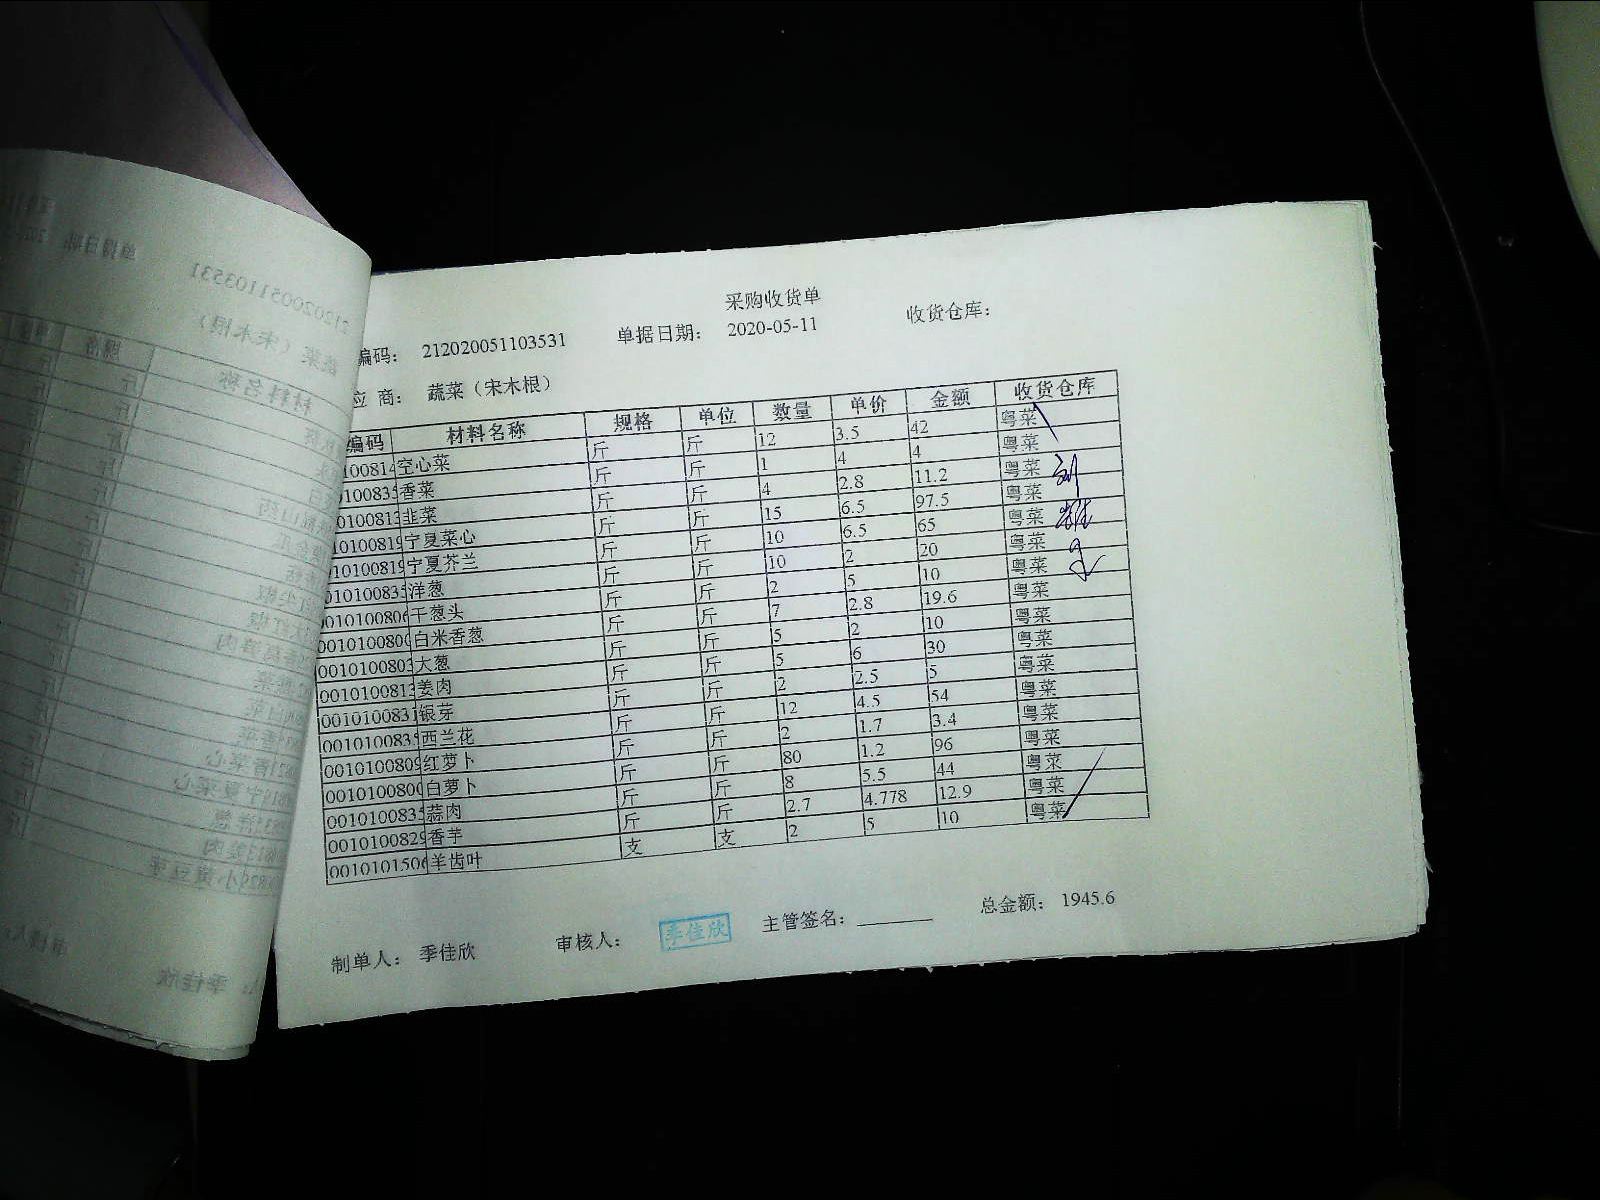 采购收货单
编码： 212020051103531 单据日期： 2020-05-11 收货仓库：
应 商： 蔬菜（宋木根）
编码 材料名称 规格 单位 数量 单价 金额 收货仓库
100814 空心菜 斤 斤 12 3.5 42 粤菜
100835 香菜 斤 斤 1 4 4 粤菜
0100813 韭菜 斤 斤 4 2.8 11.2 粤菜
10100819 宁夏菜心 斤 斤 15 6.5 97.5 粤菜
10100819 宁夏芥兰 斤 斤 10 6.5 65 粤菜
010100835 洋葱 斤 斤 10 2 20 粤菜
010100806 干葱头 斤 斤 2 5 10 粤菜
0010100800 白米香葱 斤 斤 7 2.8 19.6 粤菜
0010100803 大葱 斤 斤 5 2 10 粤菜
0010100813 姜肉 斤 斤 5 6 30 粤菜
001010083 银芽 斤 斤 2 2.5 5 粤菜
001010083 西兰花 斤 斤 12 4.5 54 粤菜
0010100809 红萝卜 斤 斤 2 1.7 3.4 粤菜
0010100800 白萝卜 斤 斤 80 1.2 96 粤菜
0010100835 蒜肉 斤 斤 8 5.5 44 粤菜
0010100829 香芋 斤 斤 2.7 4.778 12.9 粤菜
0010101506 羊齿叶 支 支 2 5 10 粤菜
制单人： 季佳欣 审核人： 季佳欣 主管签名： 总金额： 1945.6